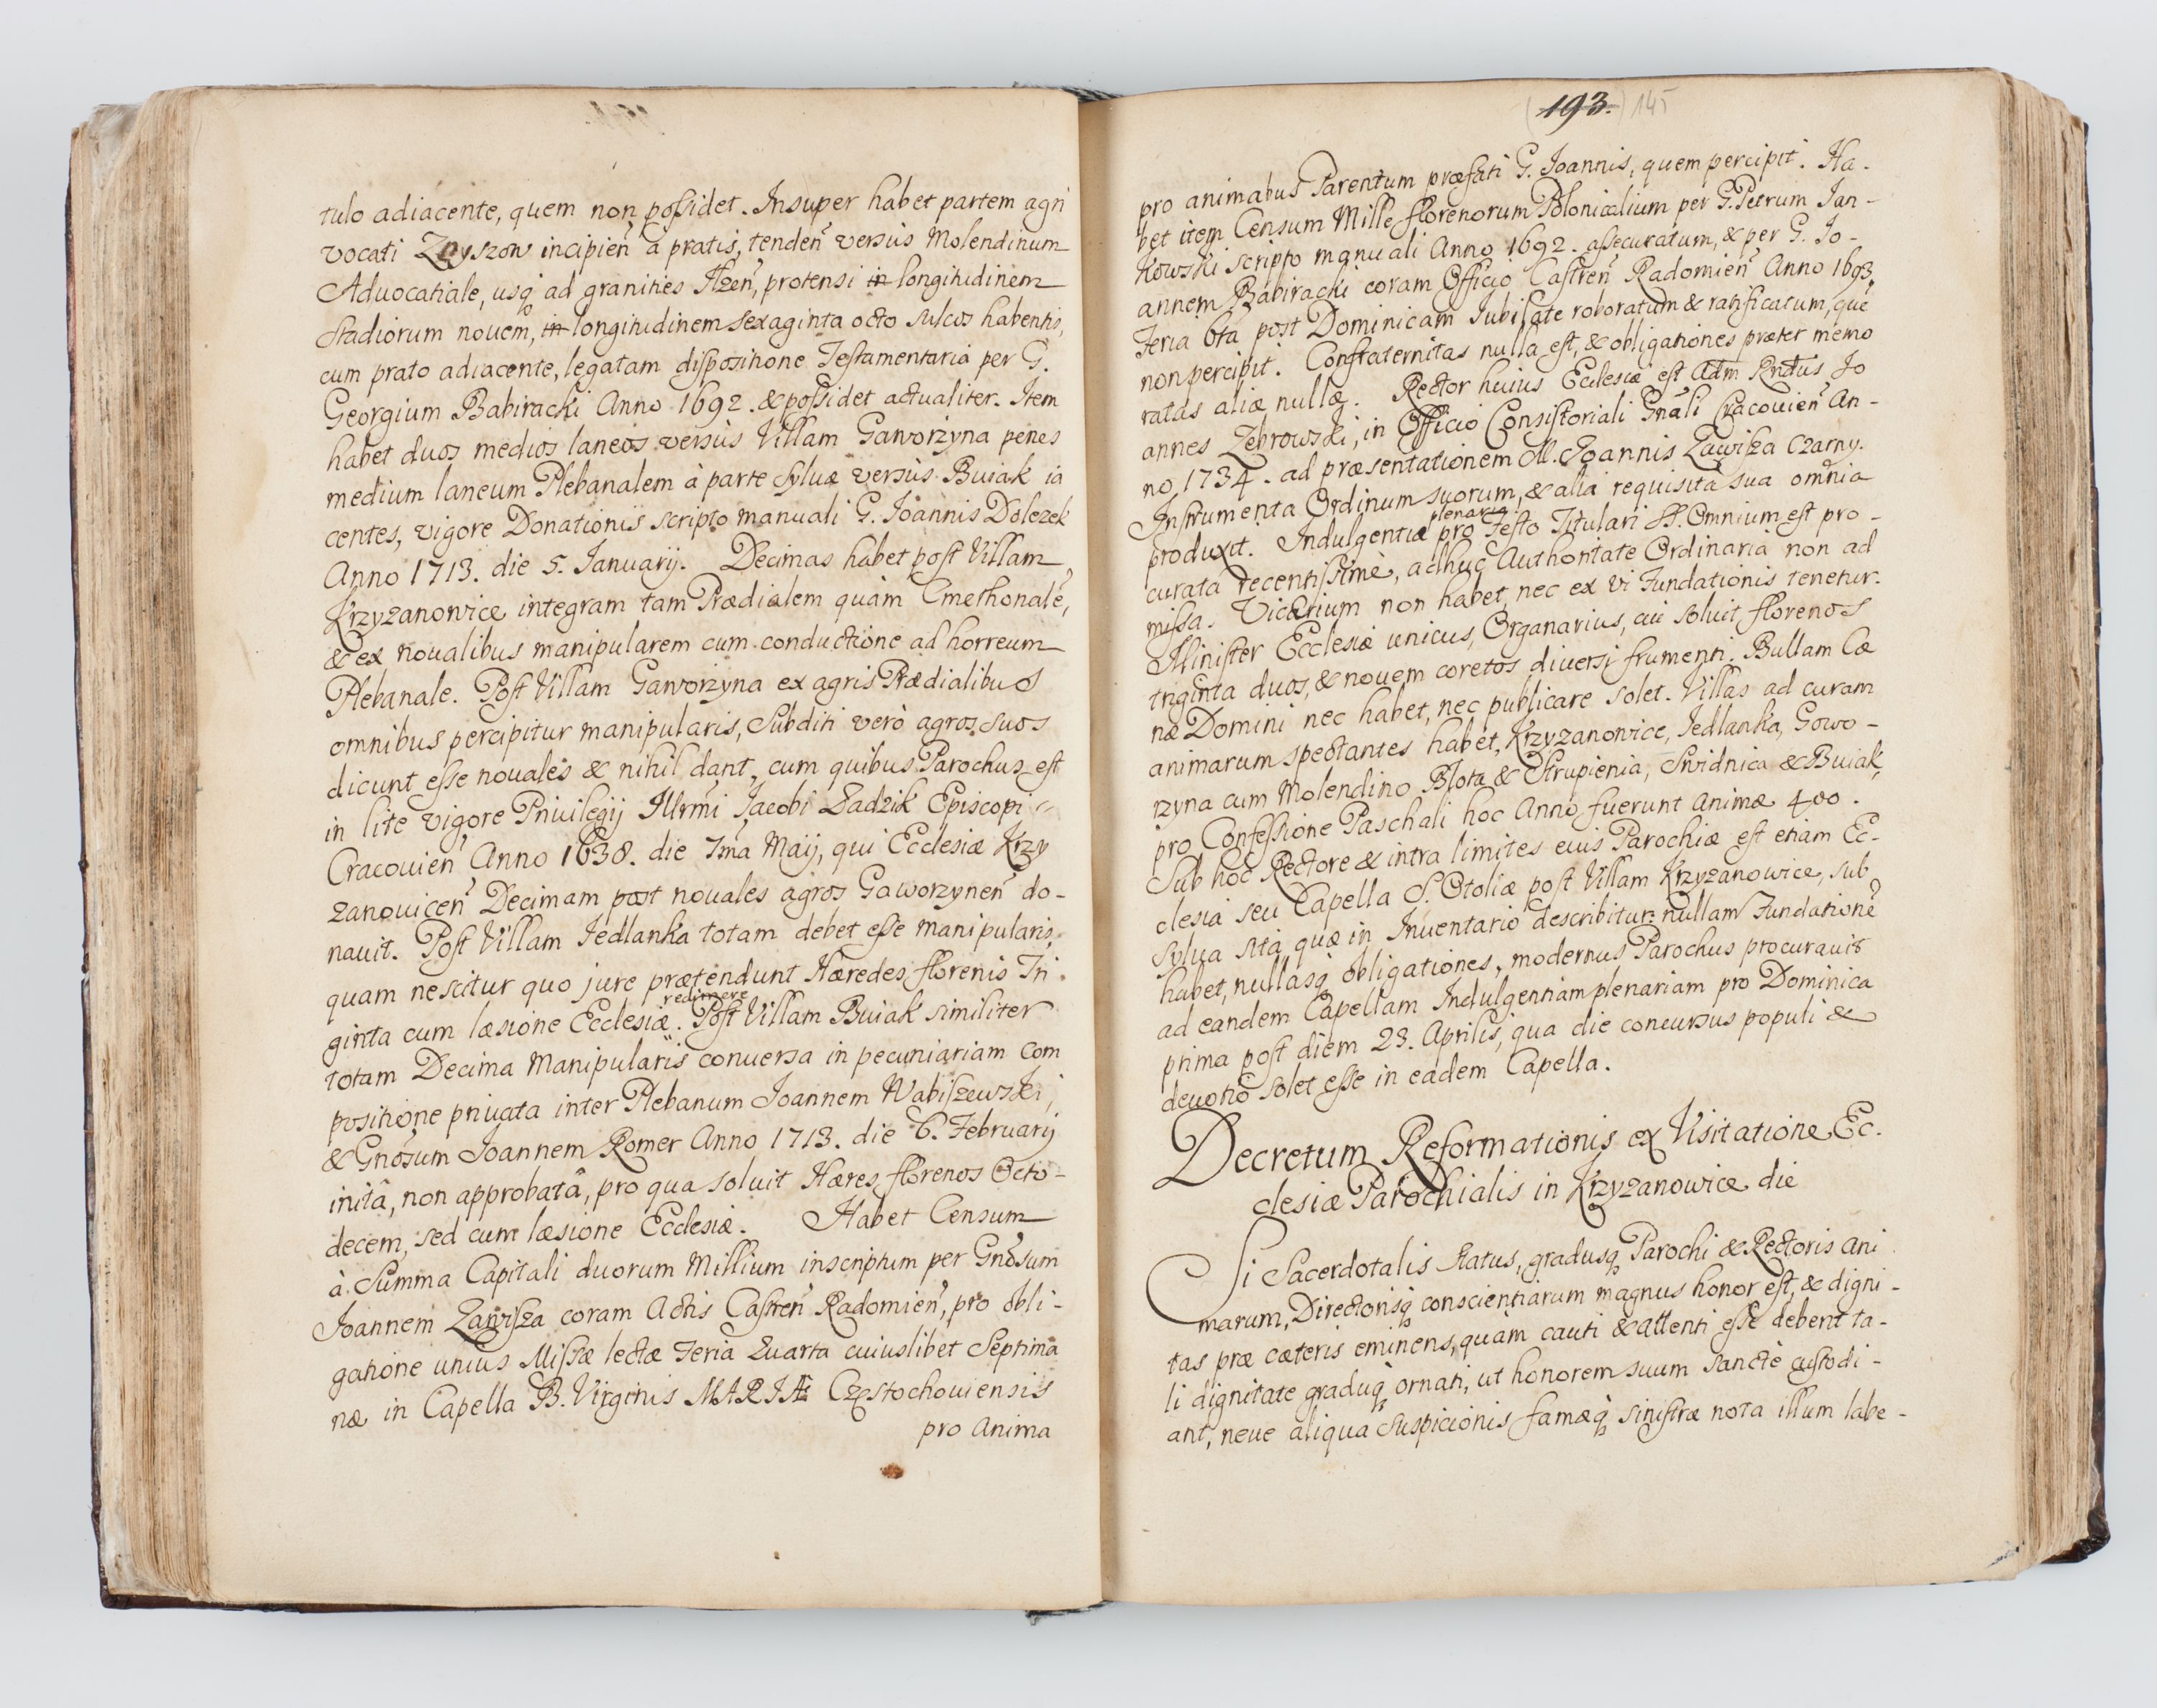 tulo adiacente, quem non possidet. Insuper habet partem agri
vocati incipien̄ à pratis, tenden̄ versùs Molendinum
Advocatiale, usq̨ ad granities protensi in longitudinem
stadiorum novem, in longitudinem sexaginta octo sulcos habentis,
cum prato adiacente, legatam dispositione Testamentaria per G.
Georgium Babiracki Anno 1692. & possidet actualiter. Item
habet duos medios laneos versùs Villam Gaworzyna penes
medium laneum Plebanalem à parte sylvæ versùs Buiak ia
centes, vigore Donationis scripto manuali G. Joannis Dolezek
Anno 1713. die 5. Januarij. Decimas habet post Villam
Krzyzanowice integram tam Prædialem quàm Cmethonalē,
& ex novalibus manipularem cum conductione ad horreum
Plebanale. Post Villam Gaworzyna ex agris Prædialibus
omnibus percipitur manipularis, Subditi verò agros suos
dicunt esse novales & nihil dant, cum quibus Parochus est
in lite vigore Privilegij Illrmi Jacobi Zadzik Episcopi
Cracovien̄ Anno 1638. die 7ma Maij, qui Ecclesiæ Krzy
zanovicen̄ Decimam post novales agros Gaworzynen̄ do-
navit. Post Villam Jedlanka totam debet esse manipularis,
quam nescitur quo jure prætendunt Hæredes florenis Tri
ginta cum læsione Ecclesiæ. redimere Post Villam Buiak similiter
totam Decima Manipularis conversa in pecuniariam com
positione privata inter Plebanum Joannem Wabiszewski,
& Gnõsum Joannem Romer Anno 1713. die 6. Februarij
inità, non approbatâ, pro qua solvit Hæres florenos Octo-
decem, sed cum læsione Ecclesiæ. Habet Censum
à Summa Capitali duorum Millium inscriptum per Gnõsum
Joannem Zawisza coram Actis Castren̄ Radomien̄, pro obli-
gatione unius Missæ lectæ Feria Quarta cuiuslibet Septima
næ in Capella B. Virginis MARIÆ Częstochoviensis
pro Anima
193. 145
pro animabus Parentum præfati G. Joannis, quem percipit. Ha-
bet item Censum Mille florenorum Polonicalium per G. Petrum Jan-
kowski scripto manuali Anno 1692. assecuratum, & per G. Jo-
annem Babiracki coram Officio Castren̄ Radomien̄ Anno 1693.
Feria 6ta post Dominicam Jubilate roboratum & ratificatum, quē
non percipit. Confraternitas nulla est, & obligationes præter memo
ratas aliæ nullæ. Rector huius Ecclesiæ est Adm Rndus Jo
annes Zebrowski, in Officio Consistoriali Gnãli Cracovien̄ An-
no 1734. ad præsentationem M. Joannis Zawisza Czarny.
Instrumenta Ordinum suorum, & alia requisita sua omnia
produxit. Indulgentiæ plenaria pro Festo Titulari SS. Omnium est pro-
curata recentissimè, adhuc Authoritate Ordinaria non ad
missa. Vicarium non habet, nec ex vi Fundationis tenetur.
Minister Ecclesiæ unicus, Organarius, cui solvit florenos
triginta duos, & novem coretos diversi frumenti. Bullam Cæ
næ Domini nec habet, nec publicare solet. Villas ad curam
animarum spectantes habet, Krzyzanowice, Jedlanka, Gowo-
rzyna cum Molendino Blota & Strupienia, Swidnica & Buiak,
pro Confessione Paschali hoc Anno fuerunt Animæ 400.
Sub hoc Rectore & intra limites eius Parochiæ est etiam Ec-
clesia seu Capella S. Otoliæ post Villam Krzyzanowice, sub
sylva sita quæ in Inventario describitur: nullam Fundationē
habet, nullasq̨ obligationes, modernus Parochus procuravit
ad eandem Capellam Indulgentiam plenariam pro Dominica
prima post diem 23. Aprilis, qua die concursus populi &
devotio solet esse in eadem Capella.
Decretum Reformationis ex Visitatione Ec-
clesiæ Parochialis in Krzyzanowice die
Si Sacerdotalis status, gradusq̨ Parochi & Rectoris ani
marum, Directorisq̨ conscientiarum magnus honor est, & digni-
tas præ cæteris eminens, quàm cauti & attenti esse debent ta-
li dignitate graduq̨ ornati, ut honorem suum sanctè custodi-
ant, neve aliqua suspicionis famæq̨ sinistræ nota illum labe-